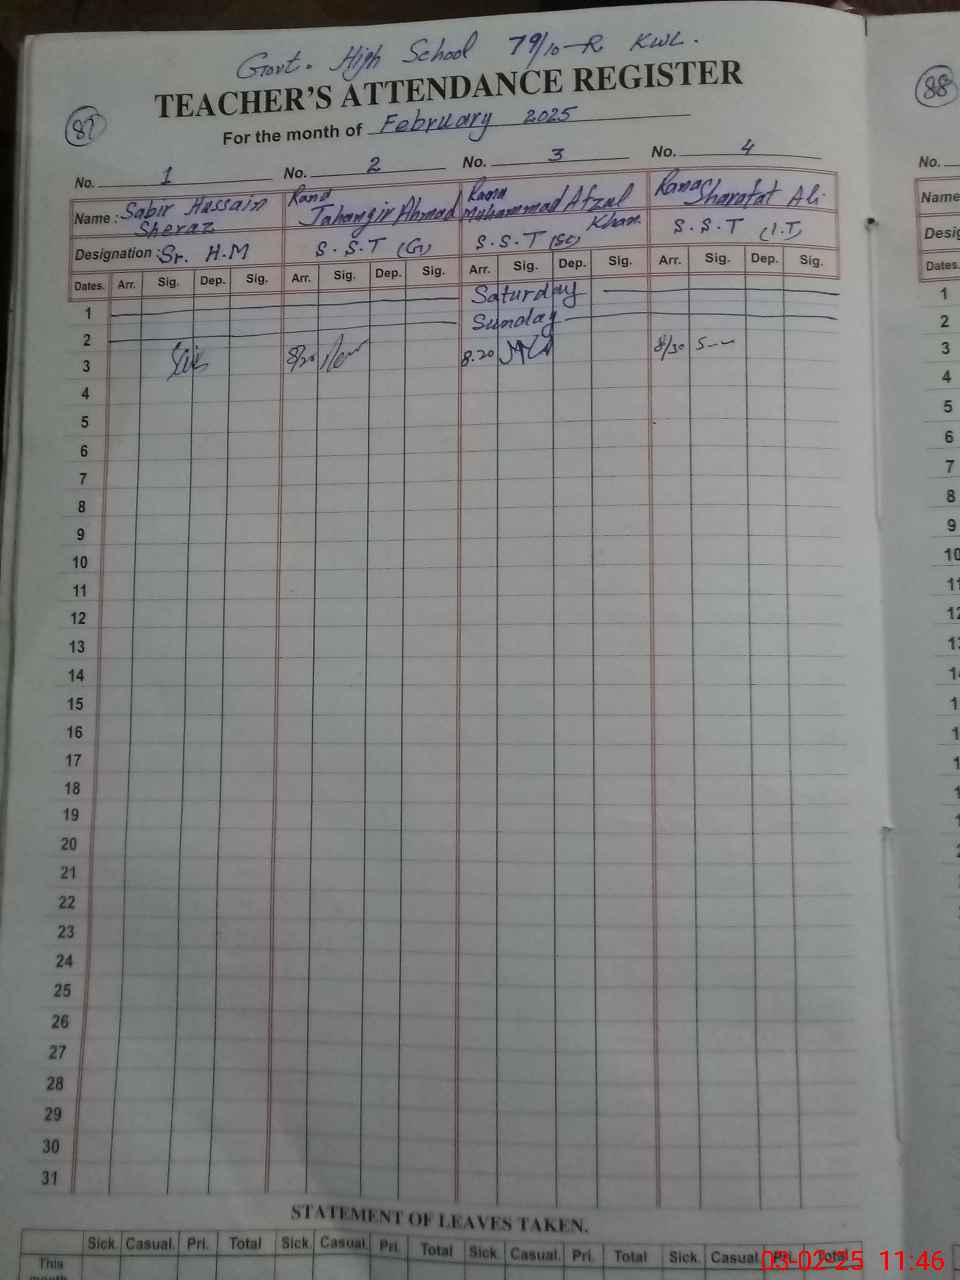 Govt. High School 79/10-R KWL.
TEACHER'S ATTENDANCE REGISTER
87
88
For the month of February 2025
No. 1 No. 2 No. 3 No. 4
No.
Name : Sabir Hussain Sheraz Rand Jahangir Ahmad Rana Muhammad Afzal Khan Rana Sharafat Ali
Name
Designation : Sr. H.M S.S.T (G) S.S.T (Sc) S.S.T (I.T)
Desig
Dates. Arr. Sig. Dep. Sig. Arr. Sig. Dep. Sig. Arr. Sig. Dep. Sig. Arr. Sig. Dep. Sig.
Dates.
1 Saturday
1
2 Sunday
2
3 8/20 8.20 8/30
3
4
4
5
5
6
6
7
7
8
8
9
9
10
10
11
11
12
12
13
13
14
14
15
16
17
18
19
20
21
22
23
24
25
26
27
28
29
30
31
STATEMENT OF LEAVES TAKEN.
Sick. Casual. Pri. Total Sick. Casual. Pri. Total Sick. Casual. Pri. Total Sick. Casual Pri. Total
This
month
03-02-25 11:46